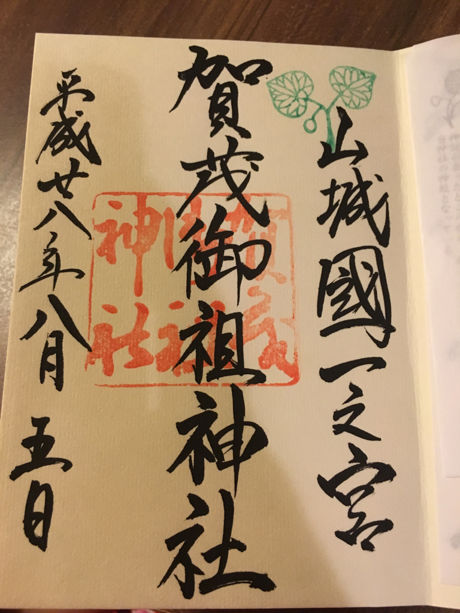 山城國一之宮
賀茂御祖神社
平成廿八年八月五日
賀茂御祖神社